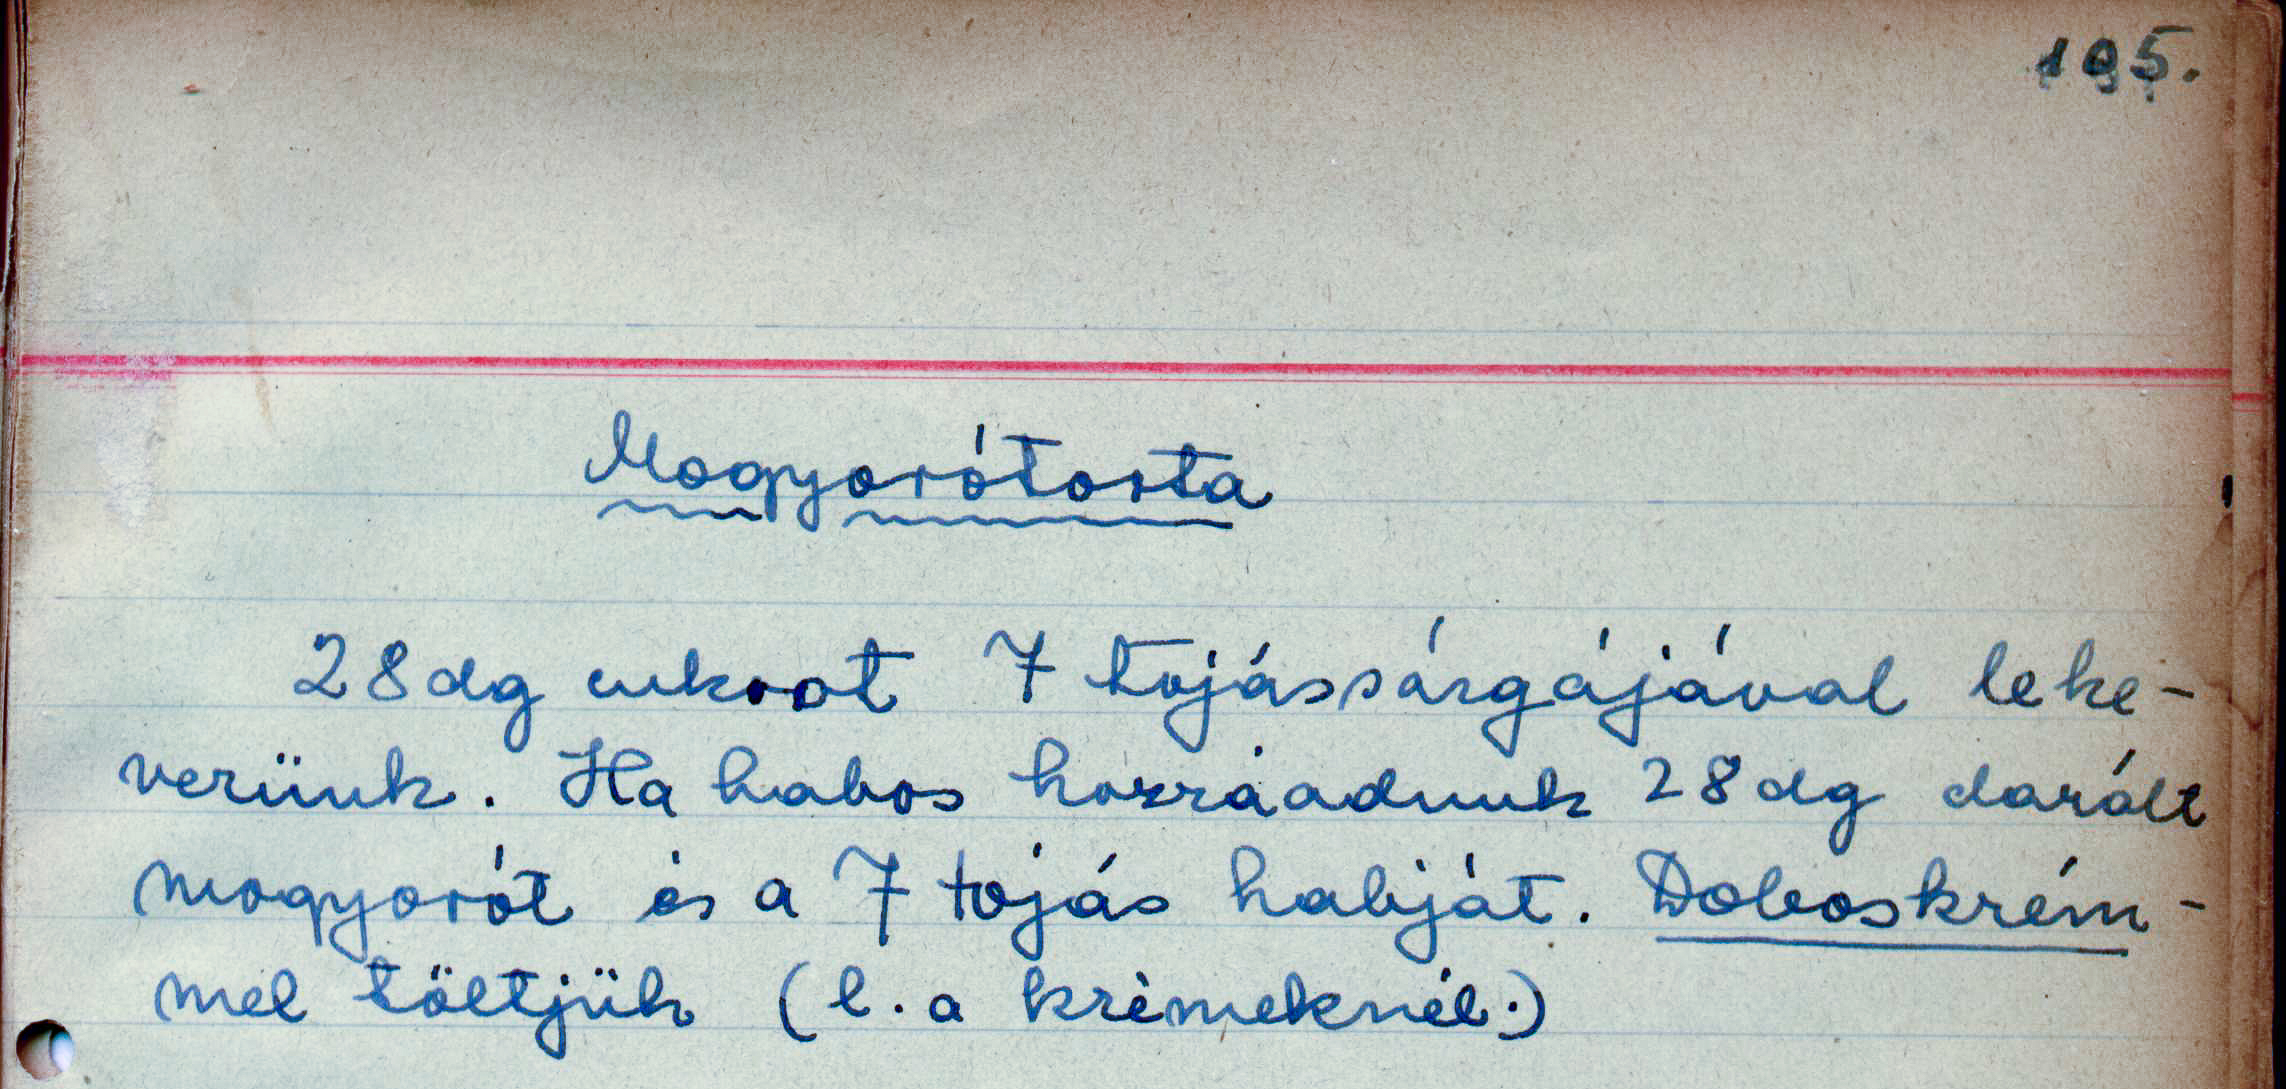 195.
Mogyorótorta
28 dg cukrot 7 tojássárgájával leke-
verünk. Ha habos hozzáadunk 28 dg darált
mogyorót és a 7 tojás habját. Doboskrém-
mel töltjük (l. a krémeknél.)